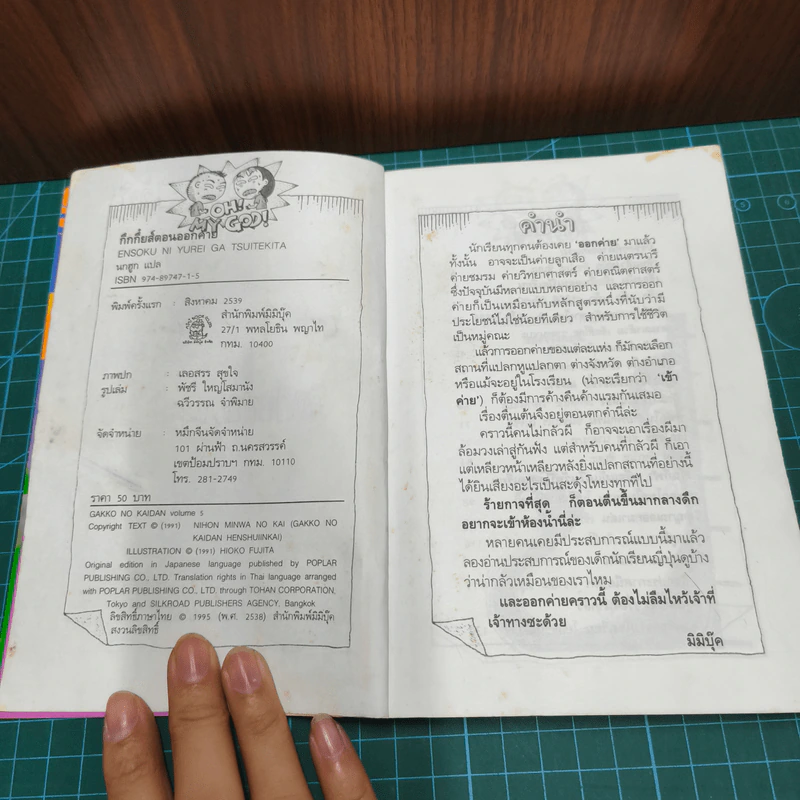 OH!
MY GOD!
กึกกึ๋ยส์ตอนออกค่าย
ENSOKU NI YUREI GA TSUITEKITA
นกฮูก แปล
ISBN 974-89747-1-5
พิมพ์ครั้งแรก : สิงหาคม 2539
สำนักพิมพ์มิมิบุ๊ค
27/1 พหลโยธิน พญาไท
กทม. 10400
ภาพปก : เลอสรร สุขใจ
รูปเล่ม : พัชรี ใหญ่โสมานัง
ฉวีวรรณ จำพิมาย
จัดจำหน่าย : หมึกจีนจัดจำหน่าย
101 ผ่านฟ้า ถ.นครสวรรค์
เขตป้อมปราบฯ กทม. 10110
โทร. 281-2749
ราคา 50 บาท
GAKKO NO KAIDAN volume 5
Copyright TEXT © (1991) NIHON MINWA NO KAI (GAKKO NO
KAIDAN HENSHUIINKAI)
ILLUSTRATION © (1991) HIOKO FUJITA
Original edition in Japanese language published by POPLAR
PUBLISHING CO., LTD. Translation rights in Thai language arranged
with POPLAR PUBLISHING CO., LTD, through TOHAN CORPORATION,
Tokyo and SILKROAD PUBLISHERS AGENCY. Bangkok
ลิขสิทธิ์ภาษาไทย © 1995 (พ.ศ. 2538) สำนักพิมพ์มิมิบุ๊ค
สงวนลิขสิทธิ์
คำนำ
นักเรียนทุกคนต้องเคย ‘ออกค่าย’ มาแล้ว
ทั้งนั้น อาจจะเป็นค่ายลูกเสือ ค่ายเนตรนารี
ค่ายชมรม ค่ายวิทยาศาสตร์ ค่ายคณิตศาสตร์
ซึ่งปัจจุบันมีหลายแบบหลายอย่าง และการออก
ค่ายก็เป็นเหมือนกับหลักสูตรหนึ่งที่นับว่ามี
ประโยชน์ไม่ใช่น้อยทีเดียว สำหรับการใช้ชีวิต
เป็นหมู่คณะ
แล้วการออกค่ายของแต่ละแห่ง ก็มักจะเลือก
สถานที่แปลกหูแปลกตา ต่างจังหวัด ต่างอำเภอ
หรือแม้จะอยู่ในโรงเรียน (น่าจะเรียกว่า ‘เข้า
ค่าย’) ก็ต้องมีการค้างคืนค้างแรมกันเสมอ
เรื่องตื่นเต้นจึงอยู่ตอนตกค่ำนี่ล่ะ
คราวนี้คนไม่กลัวผี ก็อาจจะเอาเรื่องผีมา
ล้อมวงเล่าสู่กันฟัง แต่สำหรับคนที่กลัวผี ก็เอา
แต่เหลียวหน้าเหลียวหลังยิ่งแปลกสถานที่อย่างนี้
ได้ยินเสียงอะไรเป็นสะดุ้งโหยงทุกทีไป
ร้ายกาจที่สุด ก็ตอนตื่นขึ้นมากลางดึก
อยากจะเข้าห้องน้ำนี่ล่ะ
หลายคนเคยมีประสบการณ์แบบนี้มาแล้ว
ลองอ่านประสบการณ์ของเด็กนักเรียนญี่ปุ่นดูบ้าง
ว่าน่ากลัวเหมือนของเราไหม
และออกค่ายคราวนี้ ต้องไม่ลืมไหว้เจ้าที่
เจ้าทางซะด้วย
มิมิบุ๊ค